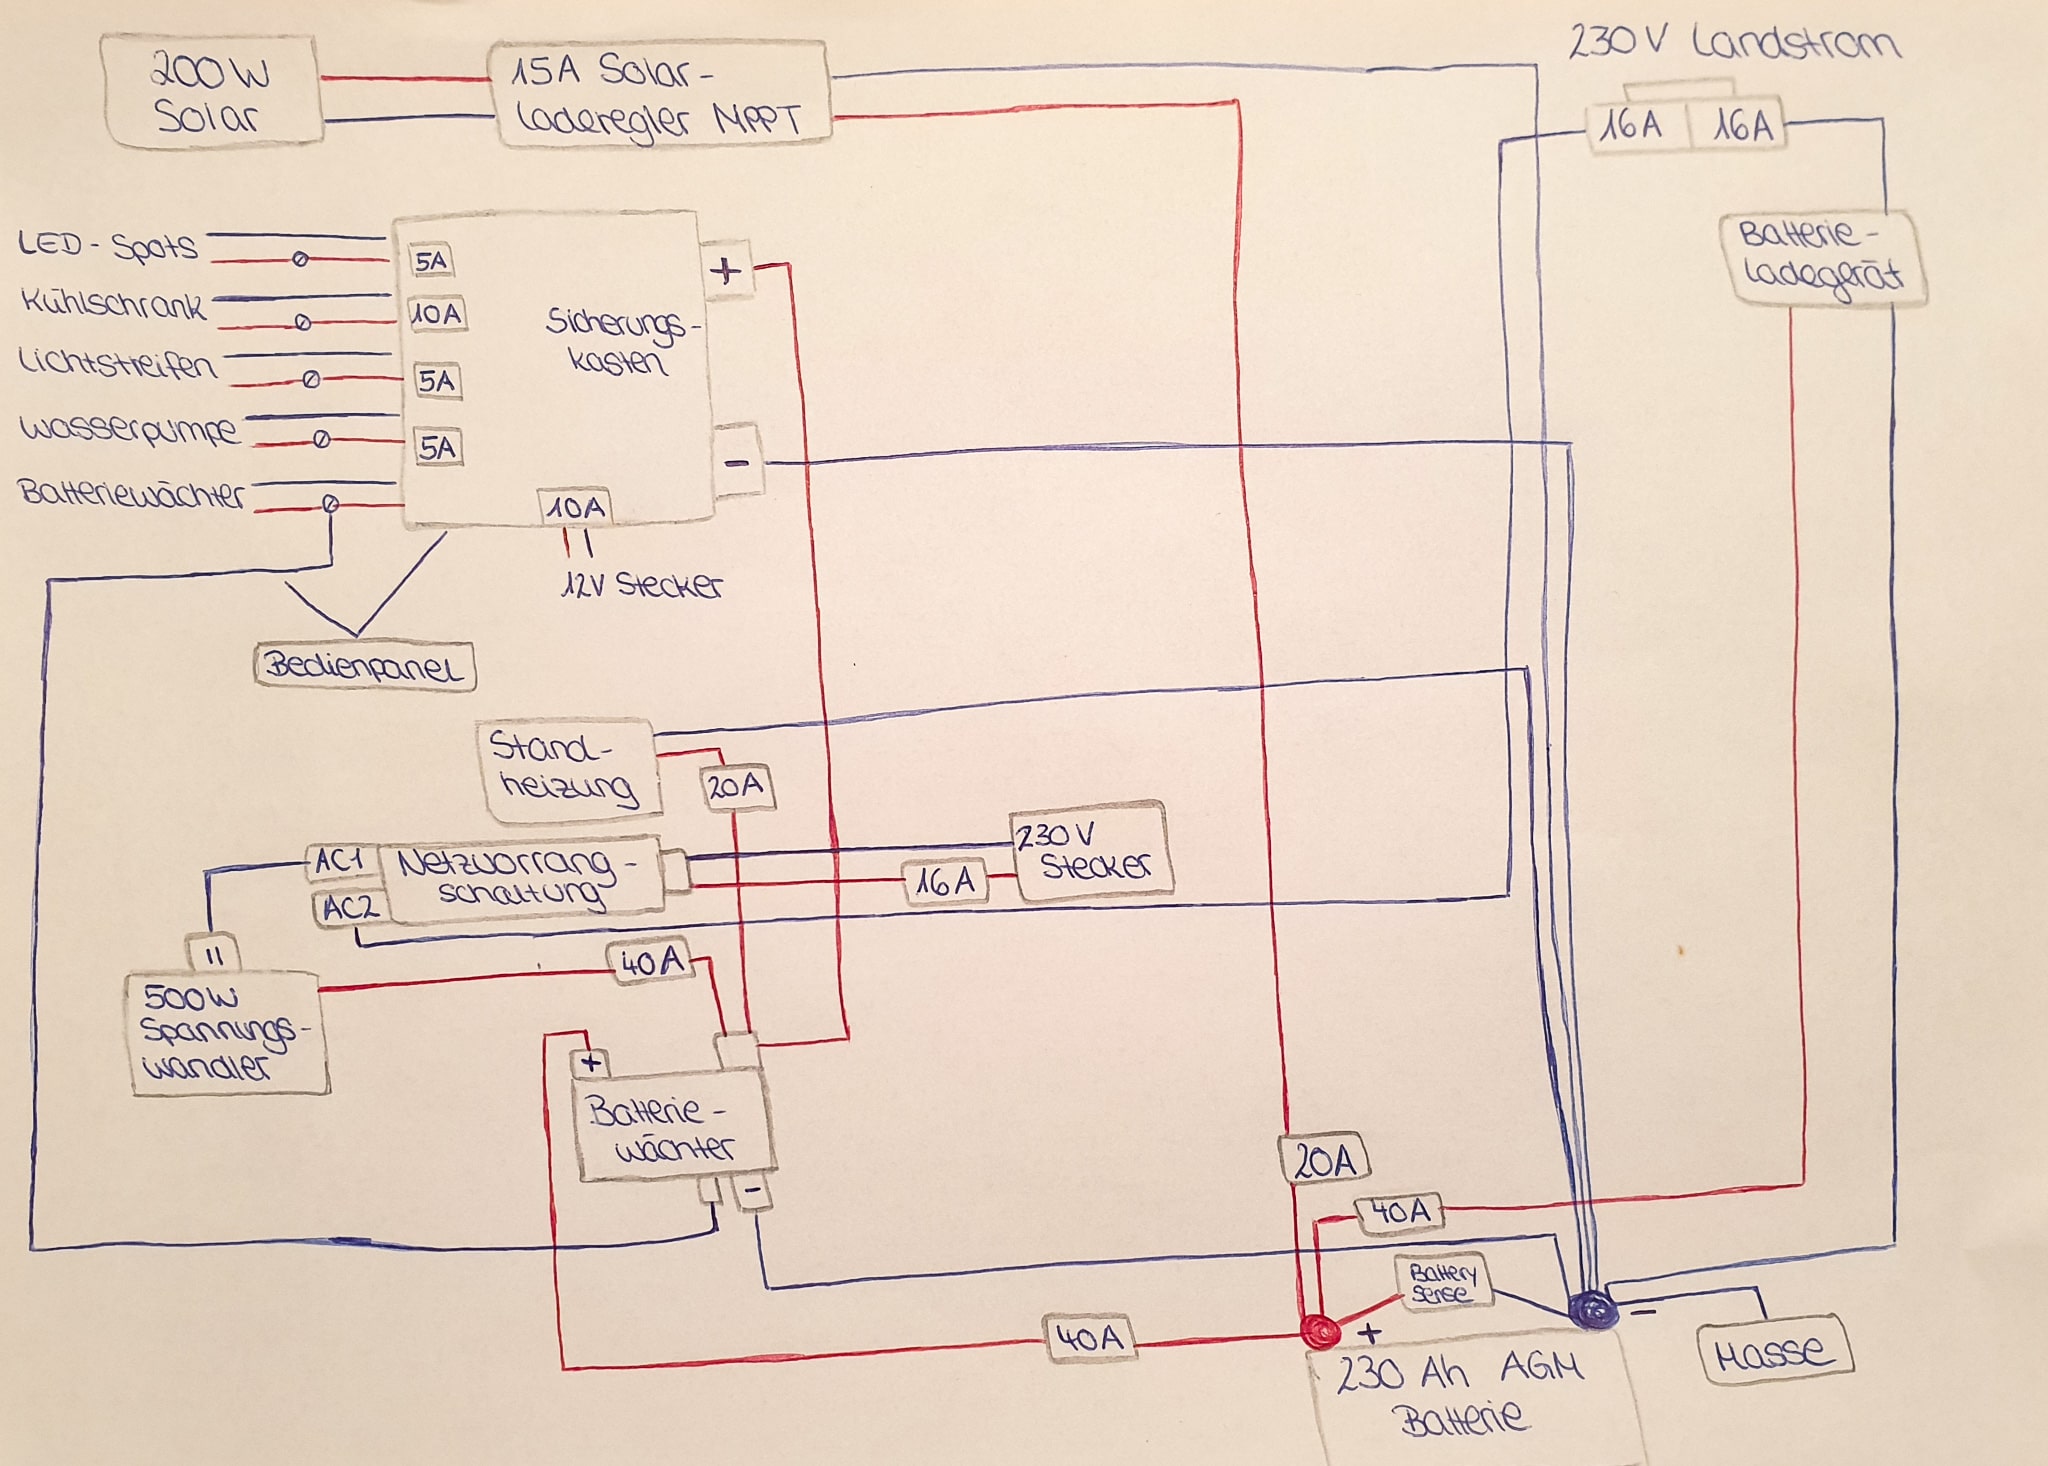 230V Landstrom
200W
Solar
15A Solar-
laderegler MPPT
16A 16A
Batterie-
ladegerät
LED-Spots
5A
Kühlschrank
10A
Sicherungs-
kasten
Lichtstreifen
5A
Wasserpumpe
5A
Batteriewächter
+
-
10A
12V Stecker
Bedienpanel
Stand-
heizung
20A
AC1
AC2
Netzvorrang-
schaltung
230V
Stecker
16A
40A
500W
Spannungs-
wandler
+
Batterie-
wächter
-
20A
40A
Battery
Sense
40A
+
-
Masse
230 Ah AGM
Batterie